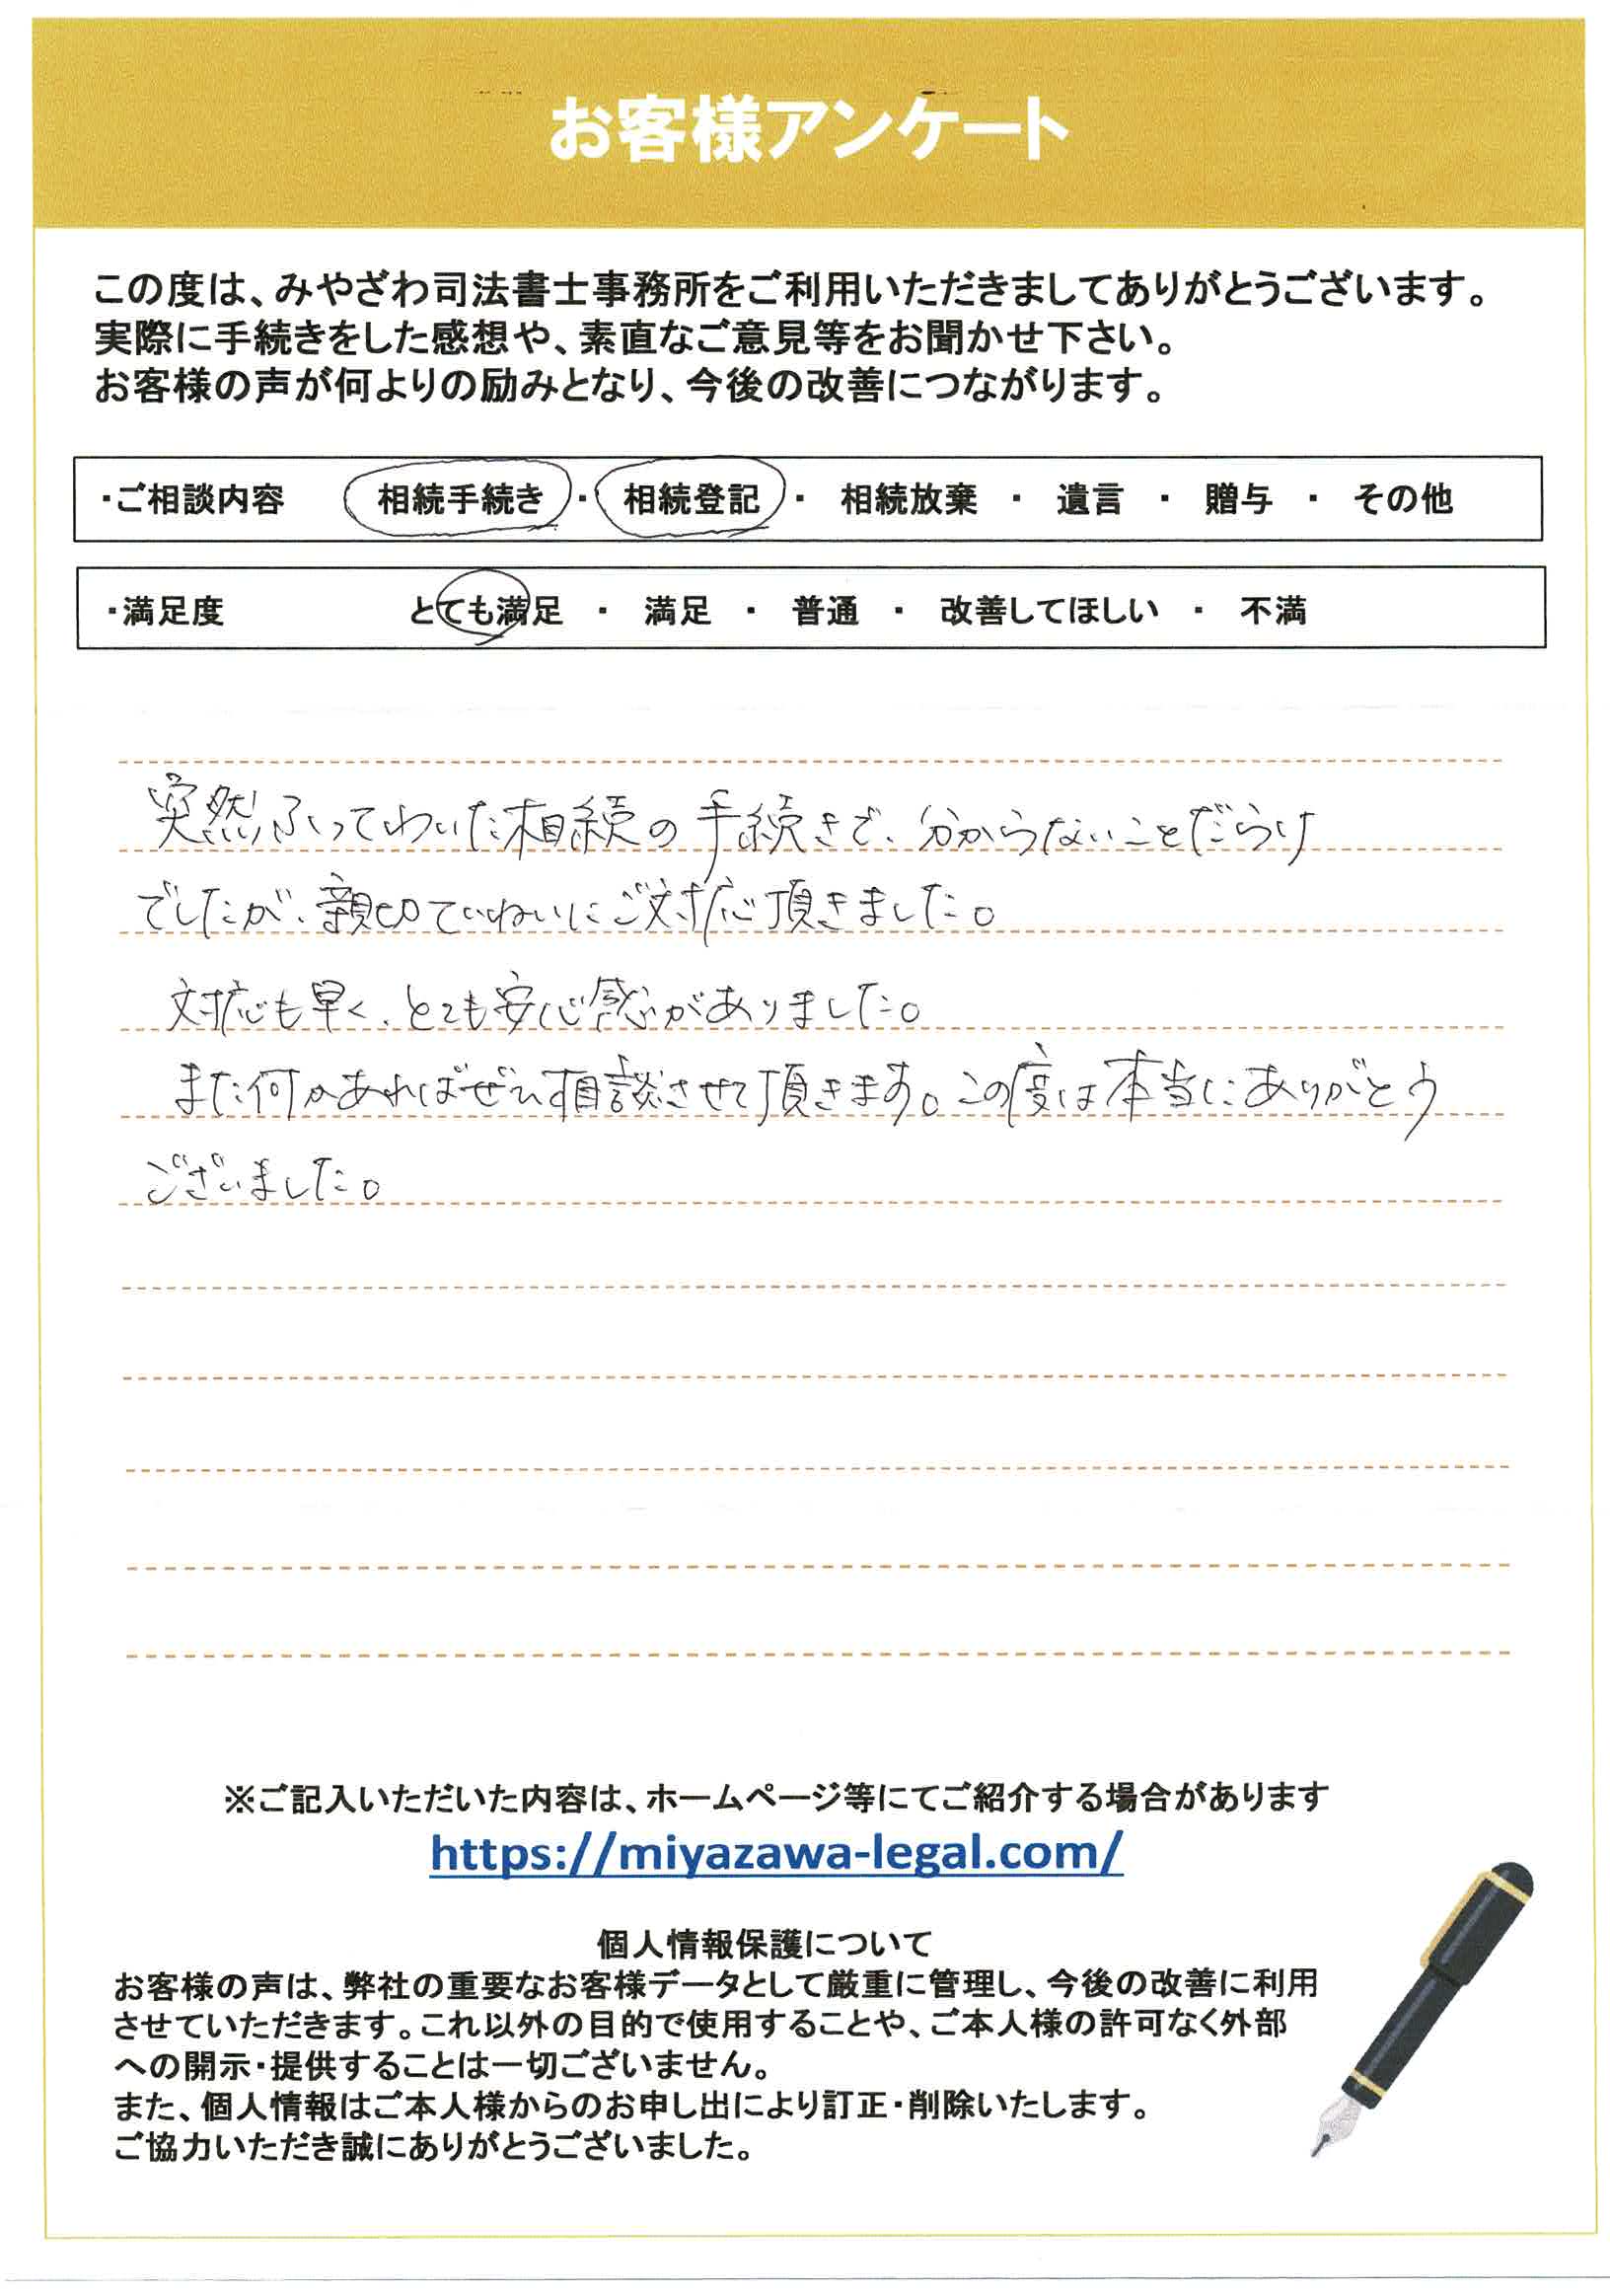 お客様アンケート
この度は、みやざわ司法書士事務所をご利用いただきましてありがとうございます。
実際に手続きをした感想や、素直なご意見等をお聞かせ下さい。
お客様の声が何よりの励みとなり、今後の改善につながります。
・ご相談内容 相続手続き ・ 相続登記 ・ 相続放棄 ・ 遺言 ・ 贈与 ・ その他
・満足度 とても満足 ・ 満足 ・ 普通 ・ 改善してほしい ・ 不満
突然ふってわいた相続の手続きで、分からないことだらけ
でしたが、親切ていねいにご対応頂きました。
対応も早く、とても安心感がありました。
また何かあればぜひ相談させて頂きます。この度は本当にありがとう
ございました。
※ご記入いただいた内容は、ホームページ等にてご紹介する場合があります
https://miyazawa-legal.com/
個人情報保護について
お客様の声は、弊社の重要なお客様データとして厳重に管理し、今後の改善に利用
させていただきます。これ以外の目的で使用することや、ご本人様の許可なく外部
への開示・提供することは一切ございません。
また、個人情報はご本人様からのお申し出により訂正・削除いたします。
ご協力いただき誠にありがとうございました。